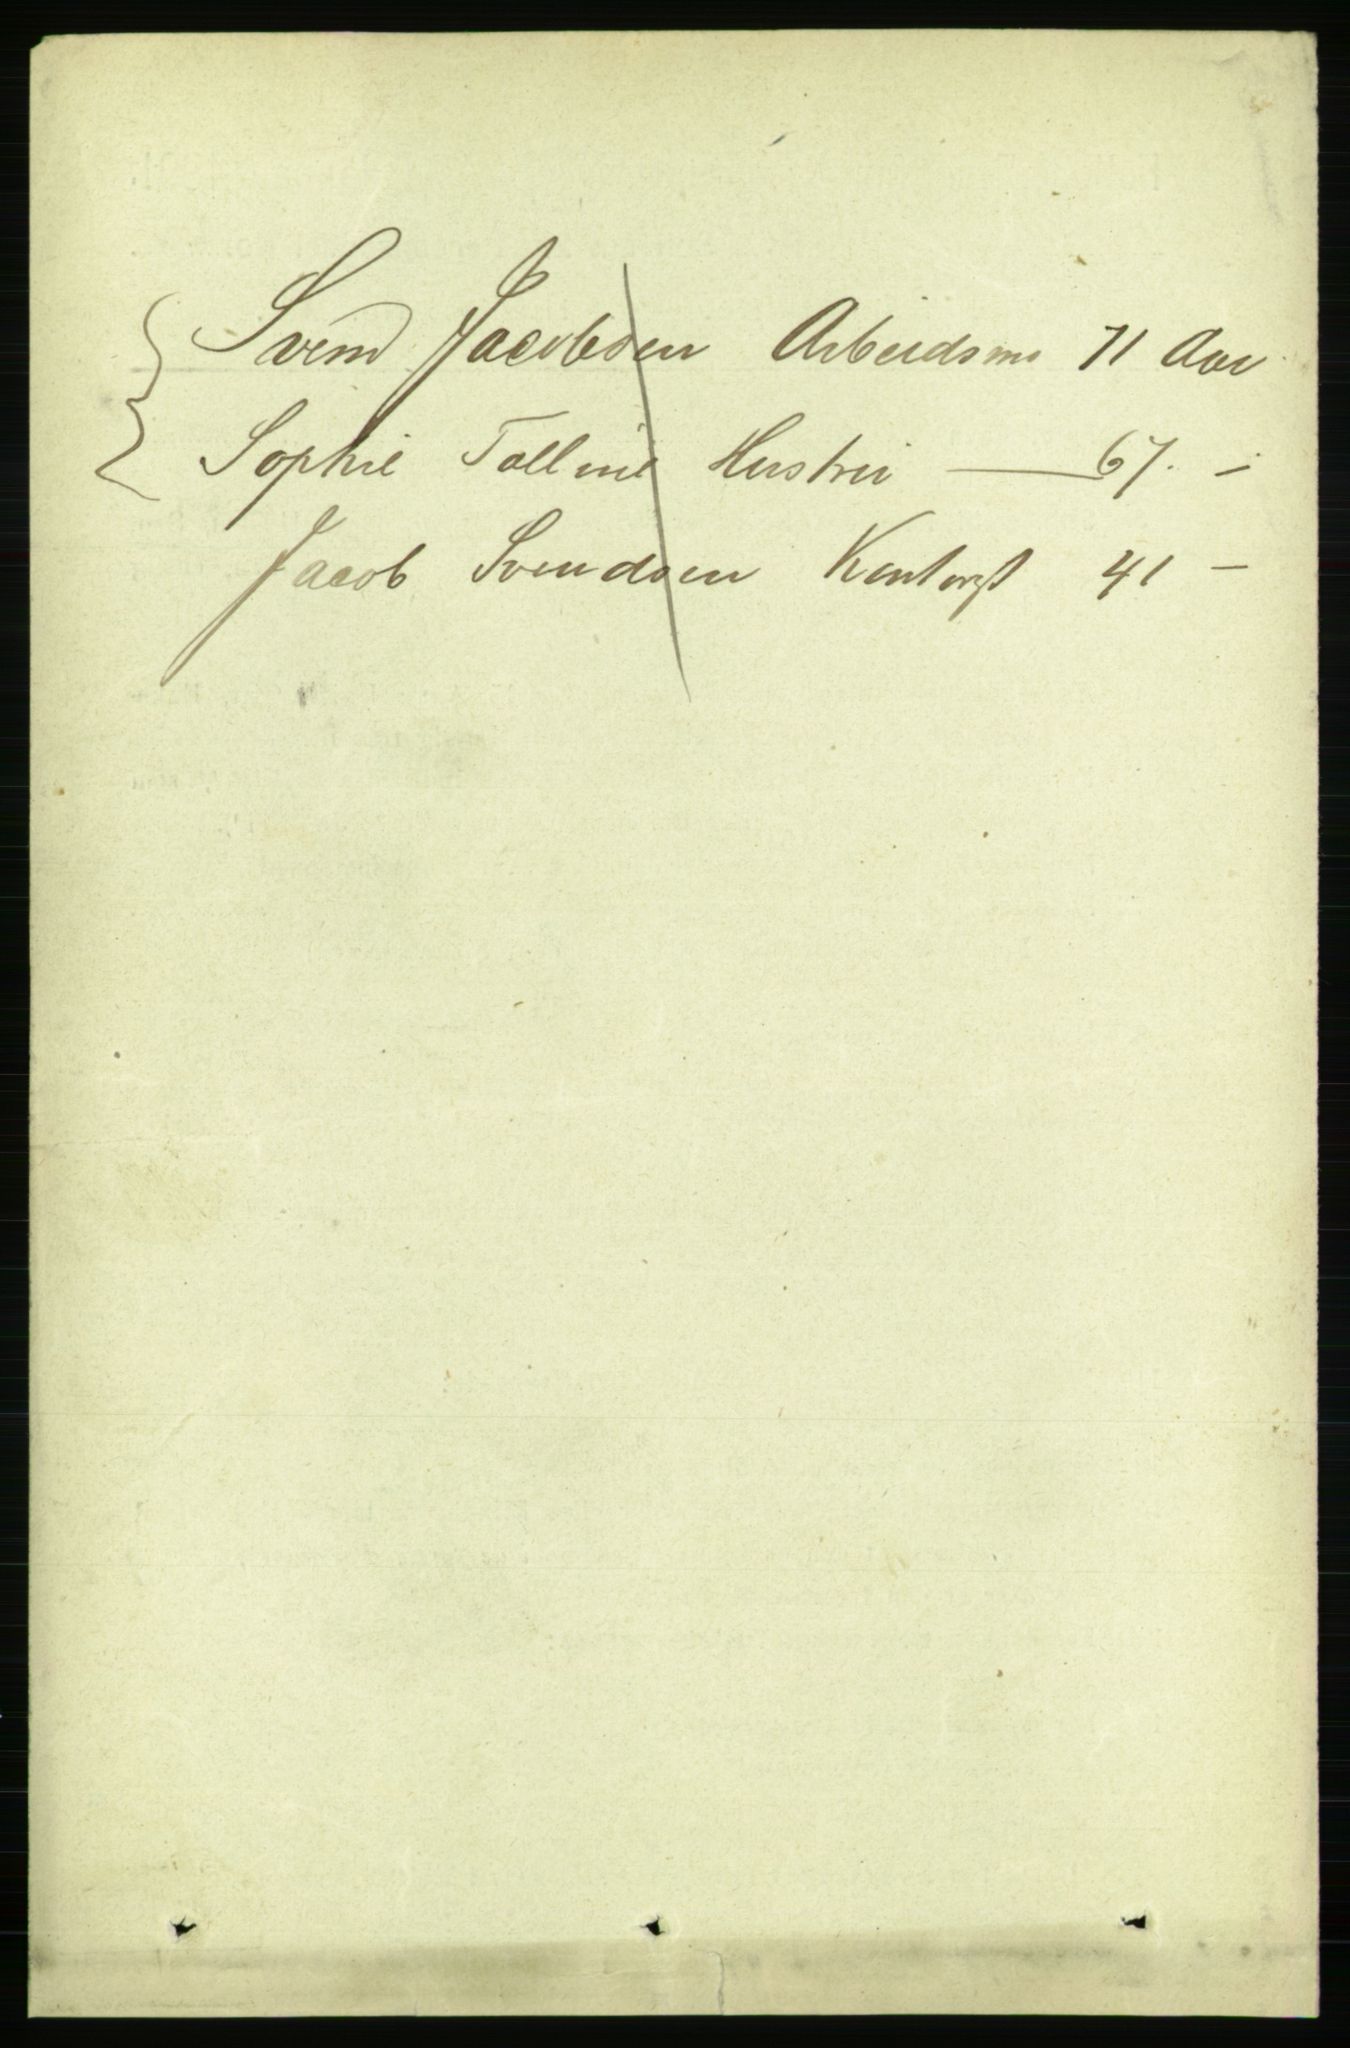 Svend Jacobsen Arbeidsm 71 Aar
Sophie Tolline Hustru — 67. –
Jacob Svendsen Kontorist 41 –